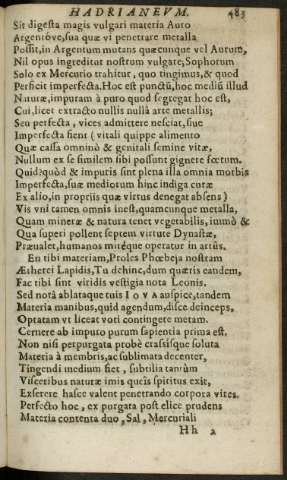 HADRIANEVM. 483
Sit digesta magis vulgari materia Auro
Argentove, sua quæ vi penetrare metalla
Possit, in Argentum mutans quæcunque vel Aurum,
Nil opus ingreditur nostrum vulgare; Sophorum
Solo ex Mercurio trahitur, quo tingimus, & quod
Perficit imperfecta. Hoc est punctū, hoc mediū illud
Naturæ, impuram à puro quod segregat hoc est,
Cui, licet extracto nullis nullâ arte metallis;
Seu perfecta, vices admittere nesciat, sine
Imperfecta fient (vitali quippe alimento
Quæ cassa omninò & genitali semine vitæ,
Nullum ex se similem sibi possunt gignere fœtum.
Quid? quòd & impuris sint plena illa omnia morbis
Imperfecta, suæ mediorum hinc indiga curæ
Ex alio, in propriis quæ virtus denegat absens)
Vis vni tamen omnis inest, quamcunque metalla,
Quam mineræ & natura tenet vegetabilis, immò &
Qua superi pollent septem virtute Dynastæ,
Præualet, humanos mitéque operatur in artus.
En tibi materiam, Proles Phœbeja nostram
Ætherei Lapidis, Tu dehinc, dum quæris eandem,
Fac tibi sint viridis vestigia nota Leonis.
Sed notâ ablataque tuis IOVA auspice, tandem
Materia manibus, quid agendum, disce deinceps,
Optatam vt liceat voti contingere metam.
Cernere ab impuro purum sapientia prima est.
Non nisi perpurgata probè crassisque soluta
Materia à membris, ac sublimata decenter,
Tingendi medium fiet, subtilia tantùm
Visceribus naturæ imis queis spiritus exit,
Exserere hasce valent penetrando corpora vires.
Perfecto hoc, ex purgata post elice prudens
Materia contenta duo, Sal, Mercuriali
Hh 2